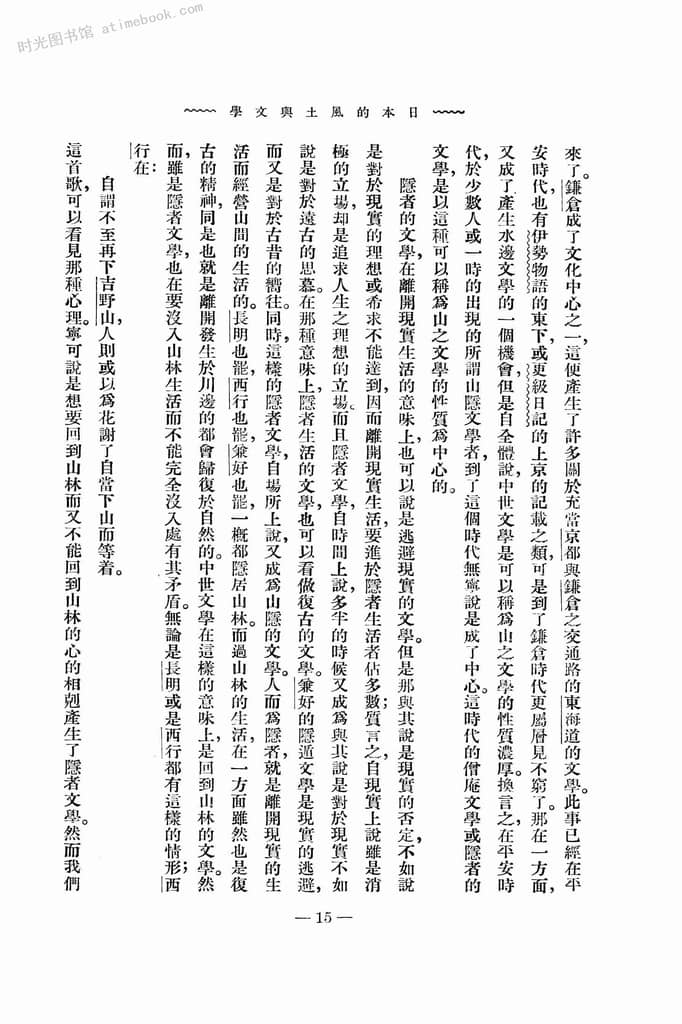 时光图书馆 atimebook.com
日本的風土與文學
來了。鎌倉成了文化中心之一，這便產生了許多關於充當京都與鎌倉之交通路的東海道的文學。此事已經在平
安時代，也有伊勢物語的東下，或更級日記的上京的記載之類，可是到了鎌倉時代更屬層見不窮了。那在一方面，
又成了產生水邊文學的一個機會，但是自全體說，中世文學是可以稱爲山之文學的性質濃厚。換言之，在平安時
代，於少數人或一時的出現的所謂山隱文學者，到了這個時代無寧說是成了中心。這時代的僧庵文學或隱者的
文學，是以這種可以稱爲山之文學的性質爲中心的。
隱者的文學，在離開現實生活的意味上，也可以說是逃避現實的文學。但是那與其說是現實的否定，不如說
是對於現實的理想或希求不能達到，因而離開現實生活，要進於隱者生活者佔多數；質言之，自現實上說雖是消
極的立場，却是追求人生之理想的立場。而且隱者文學，自時間上說，多半的時候又成爲與其說是對於現實不如
說是對於遠古的思慕。在那種意味上，隱者生活的文學，也可以看做復古的文學。兼好的隱遁文學是現實的逃避，
而又是對於古昔的嚮往。同時，這樣的隱者文學，自場所上說，又成爲山隱的文學。人而爲隱者，就是離開現實的生
活而經營山間的生活的。長明也罷，西行也罷，兼好也罷，一概都隱居山林。而過山林的生活，在一方面雖然也是復
古的精神，同是也就是離開發生於川邊的都會歸復於自然的。中世文學在這樣的意味上，是回到山林的文學。然
而，雖是隱者文學，也在要沒入山林生活而不能完全沒入處有其矛盾。無論是長明或是西行都有這樣的情形；西
行在：
自謂不至再下吉野山，人則或以爲花謝了自當下山而等着。
這首歌，可以看見那種心理。寧可說是想要回到山林而又不能回到山林的心的相剋產生了隱者文學。然而我們
— 15 —